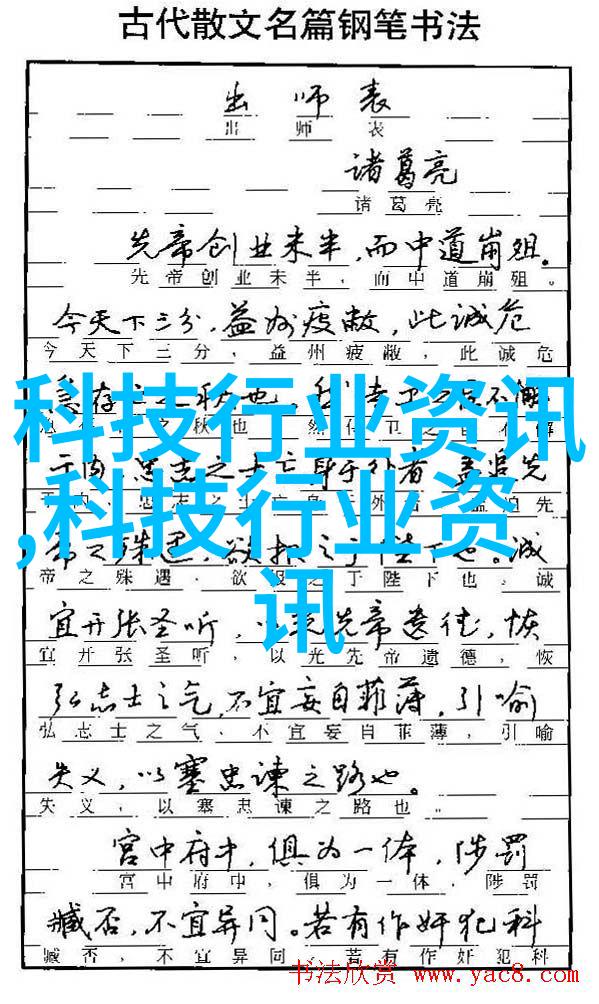 古代散文名篇钢笔书法
出师表
出师表
诸葛亮
诸葛亮
先帝创业未半，而中道崩殂。
先帝创业未半，而中道崩殂。
今天下三分，益州疲敝，此诚危
今天下三分，益州疲敝，此诚危
科技行业资讯
之秋也
忠志之士亡身于外者，盖追先
,科技行业资
帝之殊遇，欲报之于陛下也。诚
帝之殊遇，欲报之于陛下也，诚
讯
宜开张圣听，以光先帝遗德，恢
宜开张圣听，以光先帝遗德，恢
弘志士之气，不宜妄自菲薄，引喻
弘志士之气，不宜妄自菲薄，引喻
失义，以塞忠谏之路也。
失义，以塞忠谏之路也。
宫中府中，俱为一体，陟罚
宫中府中，俱为一体，陟罚
臧否，不宜异同。若有作奸犯科
臧否，不宜异同。若有作奸犯科
书法欣赏 www.yac8.com